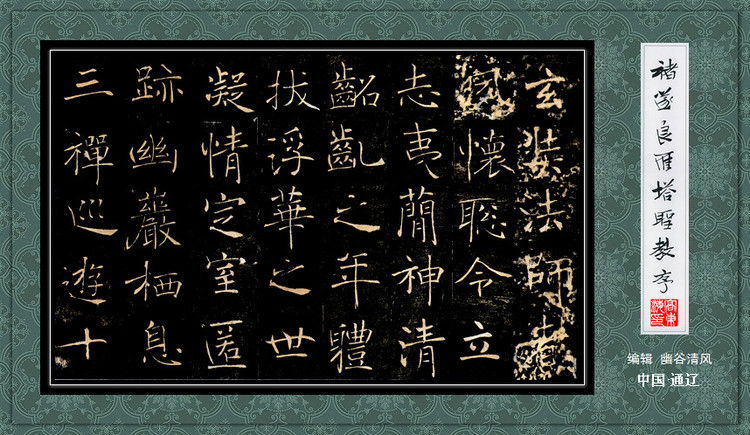 玄奘法師者
夙懷聡令立
志夷簡神清
齠齔之年體
拔浮華之世
凝情定室匿
跡幽巖栖息
三禪巡遊十
褚遂良雁塔聖教序
编辑 幽谷清风
中国 通辽